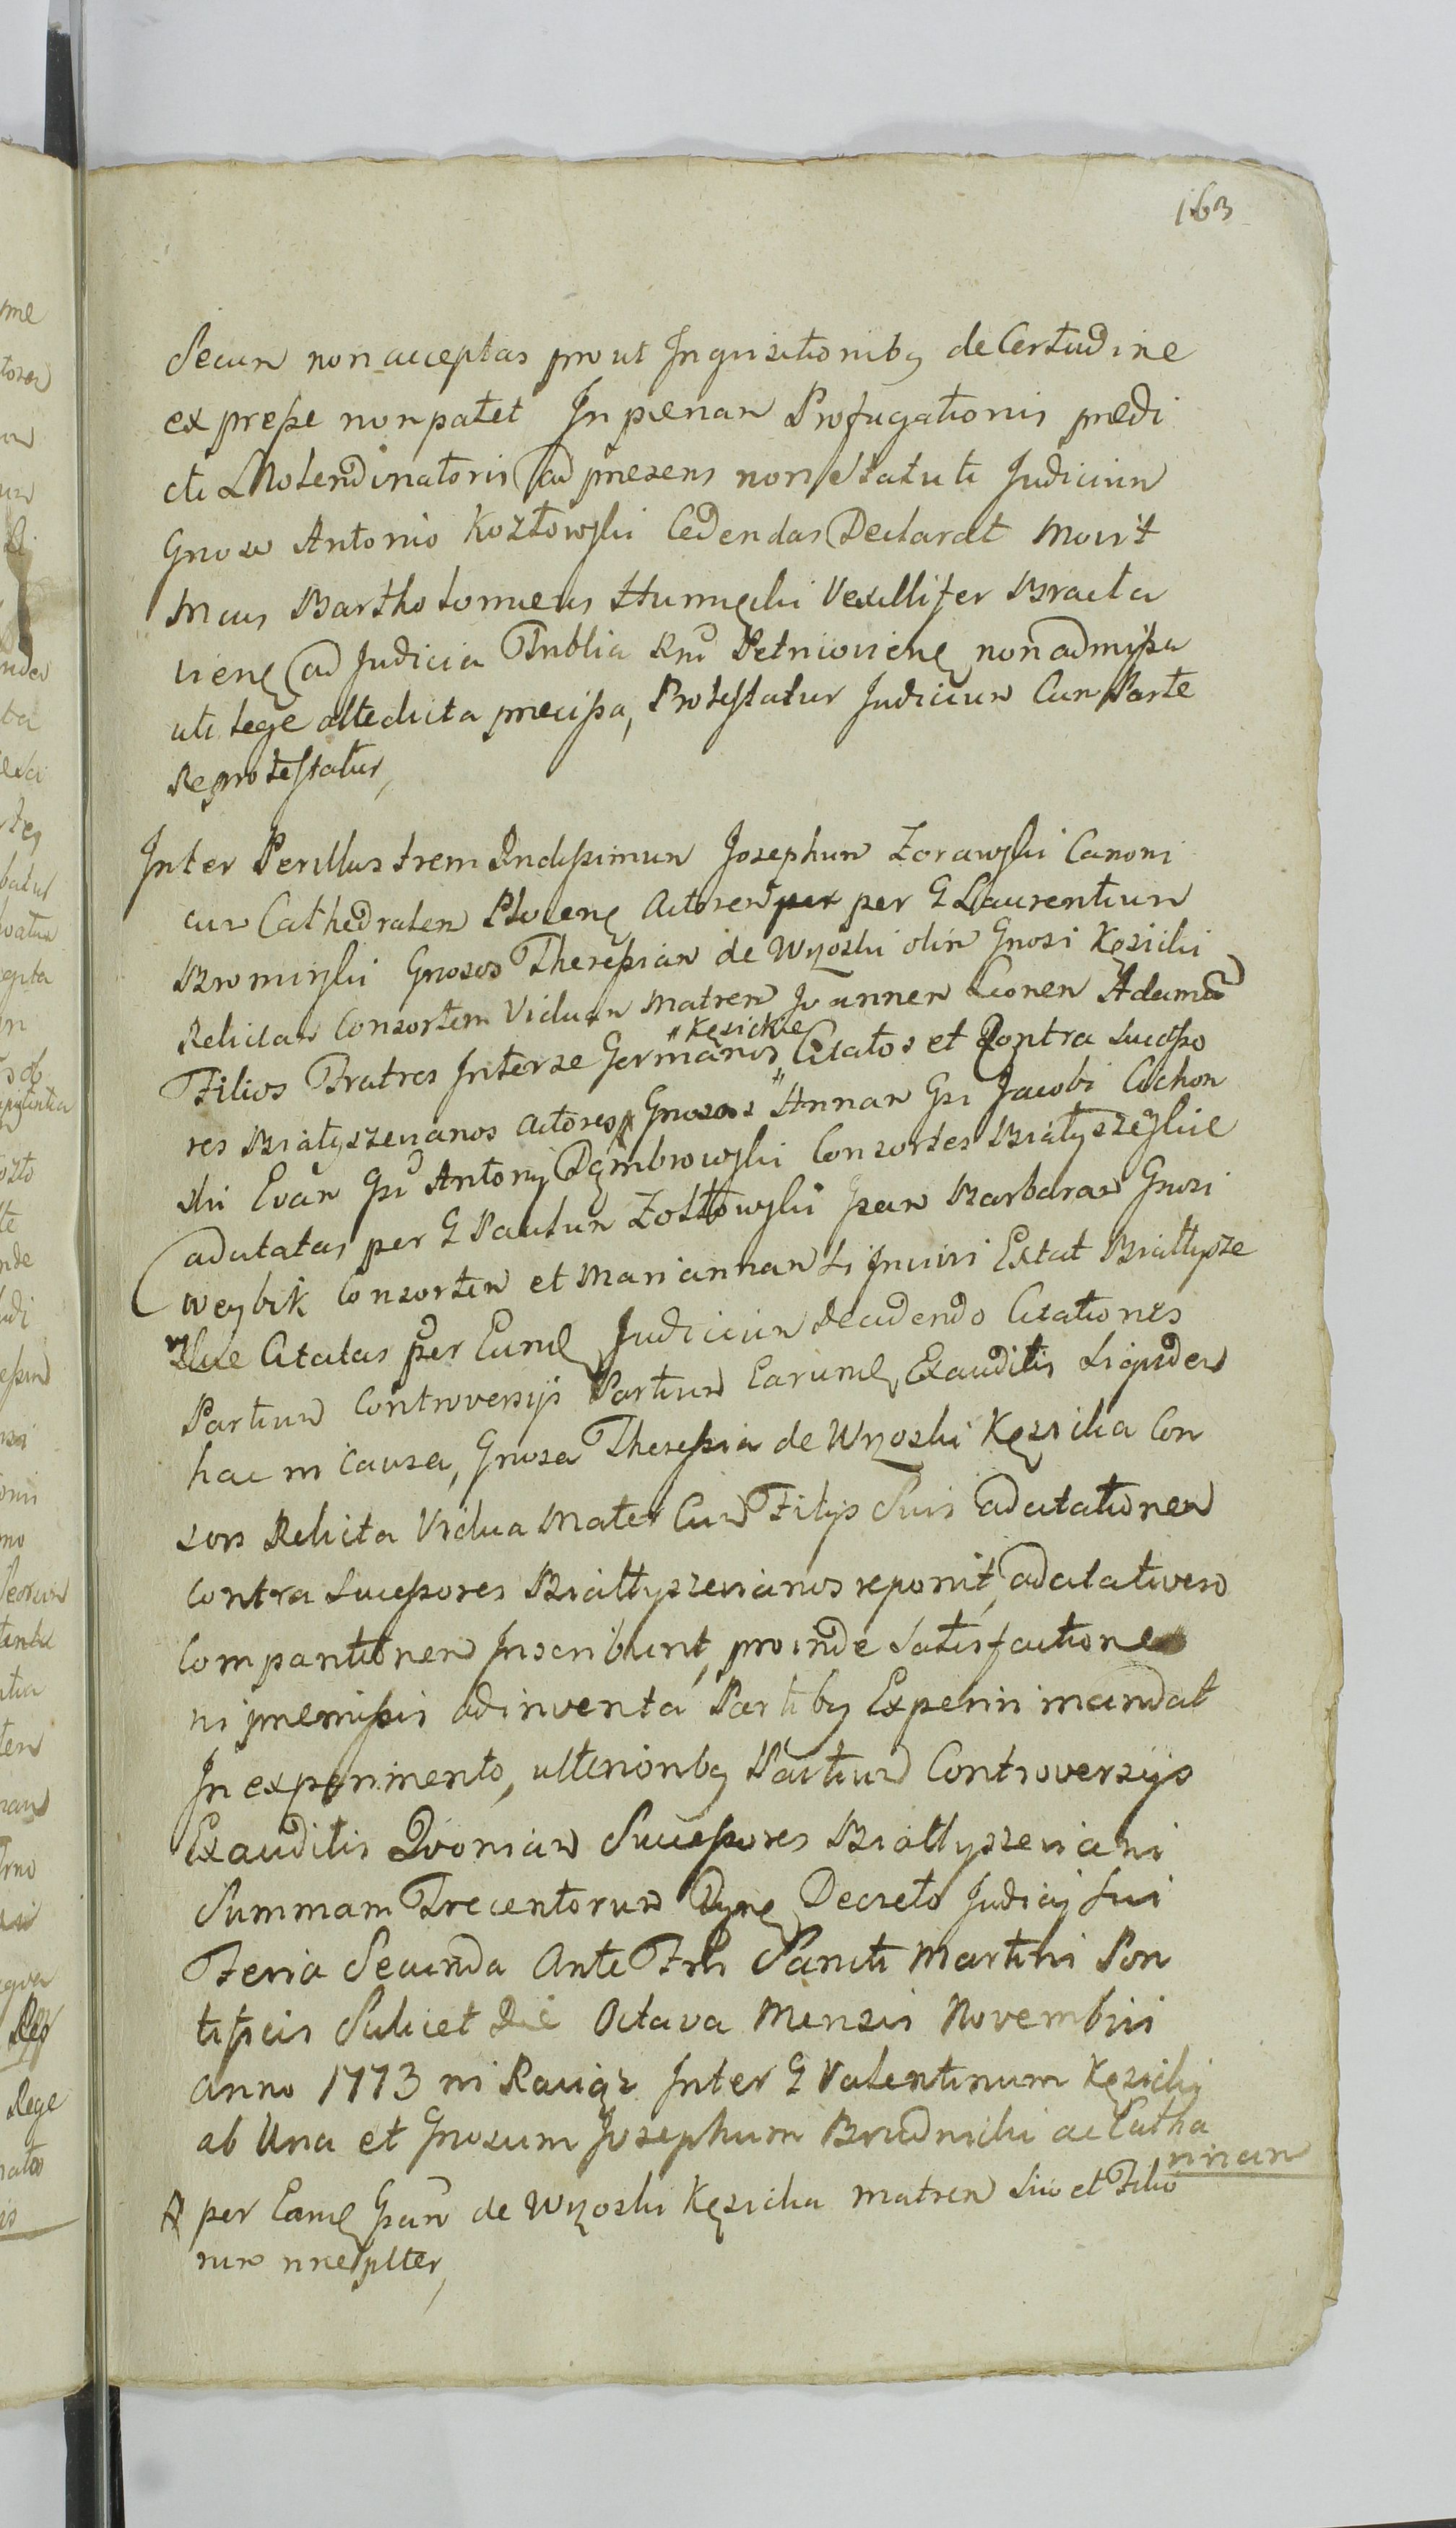 163
Secum non acceptas prout Inquisitionibq de Certudine
expresse non patet In pœnam Profugationis prædi
cti Molendinatoris ad præsens non statuti Judicium
Gnoso Antonio Kozłowski Cedendas Declarat Movit
Mcus Bartholomæus Humięcki Vexillifer Bracła
vienȩ ad Judicia Tnblia Rni Petricovienȩ non admissa
uti lege altedicta præcissa, Protestatur Judicium Cum Parte
Reprotestatur,
Inter Perillustrem Rndissimum Josephum Zorawski Canoni
cum Cathedralem Plocenȩ Actorem per per G Laurentium
Bromirski Gnosos Theressiam de Wyzoski olim Gnosi Kęsicki
Relictam Consortem Viduam Matrem Joannem Leonem Adamū
Filios Fratres Inter se Germanos Kęsickie Citatos et Contra Successo
res Białyszevianos Actores Gnosas Annam Gsi Jacobi Cichon
ski Evam Gsi Antonij Dęmbrowski Consortes Białyszeskie
adcitatas per G Paulum Zołtowski Gsam Barbaram Gnosi
Weybik Consortem et Mariannam Extat Białłysze
skie Citatas per Eundȩ Judicium decidendo Citationes
Partium Controversijs Partium Earundȩ Exauditis Siquidem
hac in Causa, Gnosa Theressia de Wyzoski Kęsicka Con
sors Relicta Vidua Mater Cum Filijs Suis adcitationem
Contra Successores Białłyszevianos reponit, adcitati vero
Comparitionem Inscribunt, proinde Satisfactione
in præmissis adinventa Partibq Experiri mandat
In experimento, ulterioribq Partium Controversijs
Exauditis Quoniam Successores Białłyszeviani
Summam Trecentorum Decreto Judicij Sui
Feria Secunda Ante Fm Sancti Martini Pon
tificis Scilicet Die Octava Mensis Novembris
Anno 1773 in Raciąz Inter G Valentinum Kęsicki
ab Una et Gnosum Josephum Brudnicki ac Catha
rinam
# per Eandȩ Gsam de Wyzoski Kęsicka matrem Suo et Filio
rum nneplter,